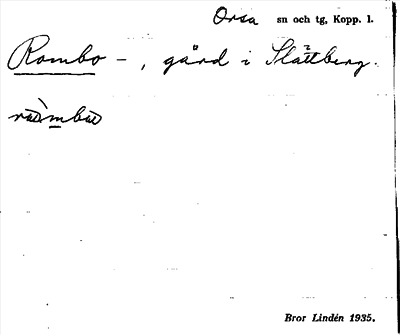 Orsa sn och tg, Kopp. l.
Rombo - , gård i Slättberg.
Bror Lindén 1935.